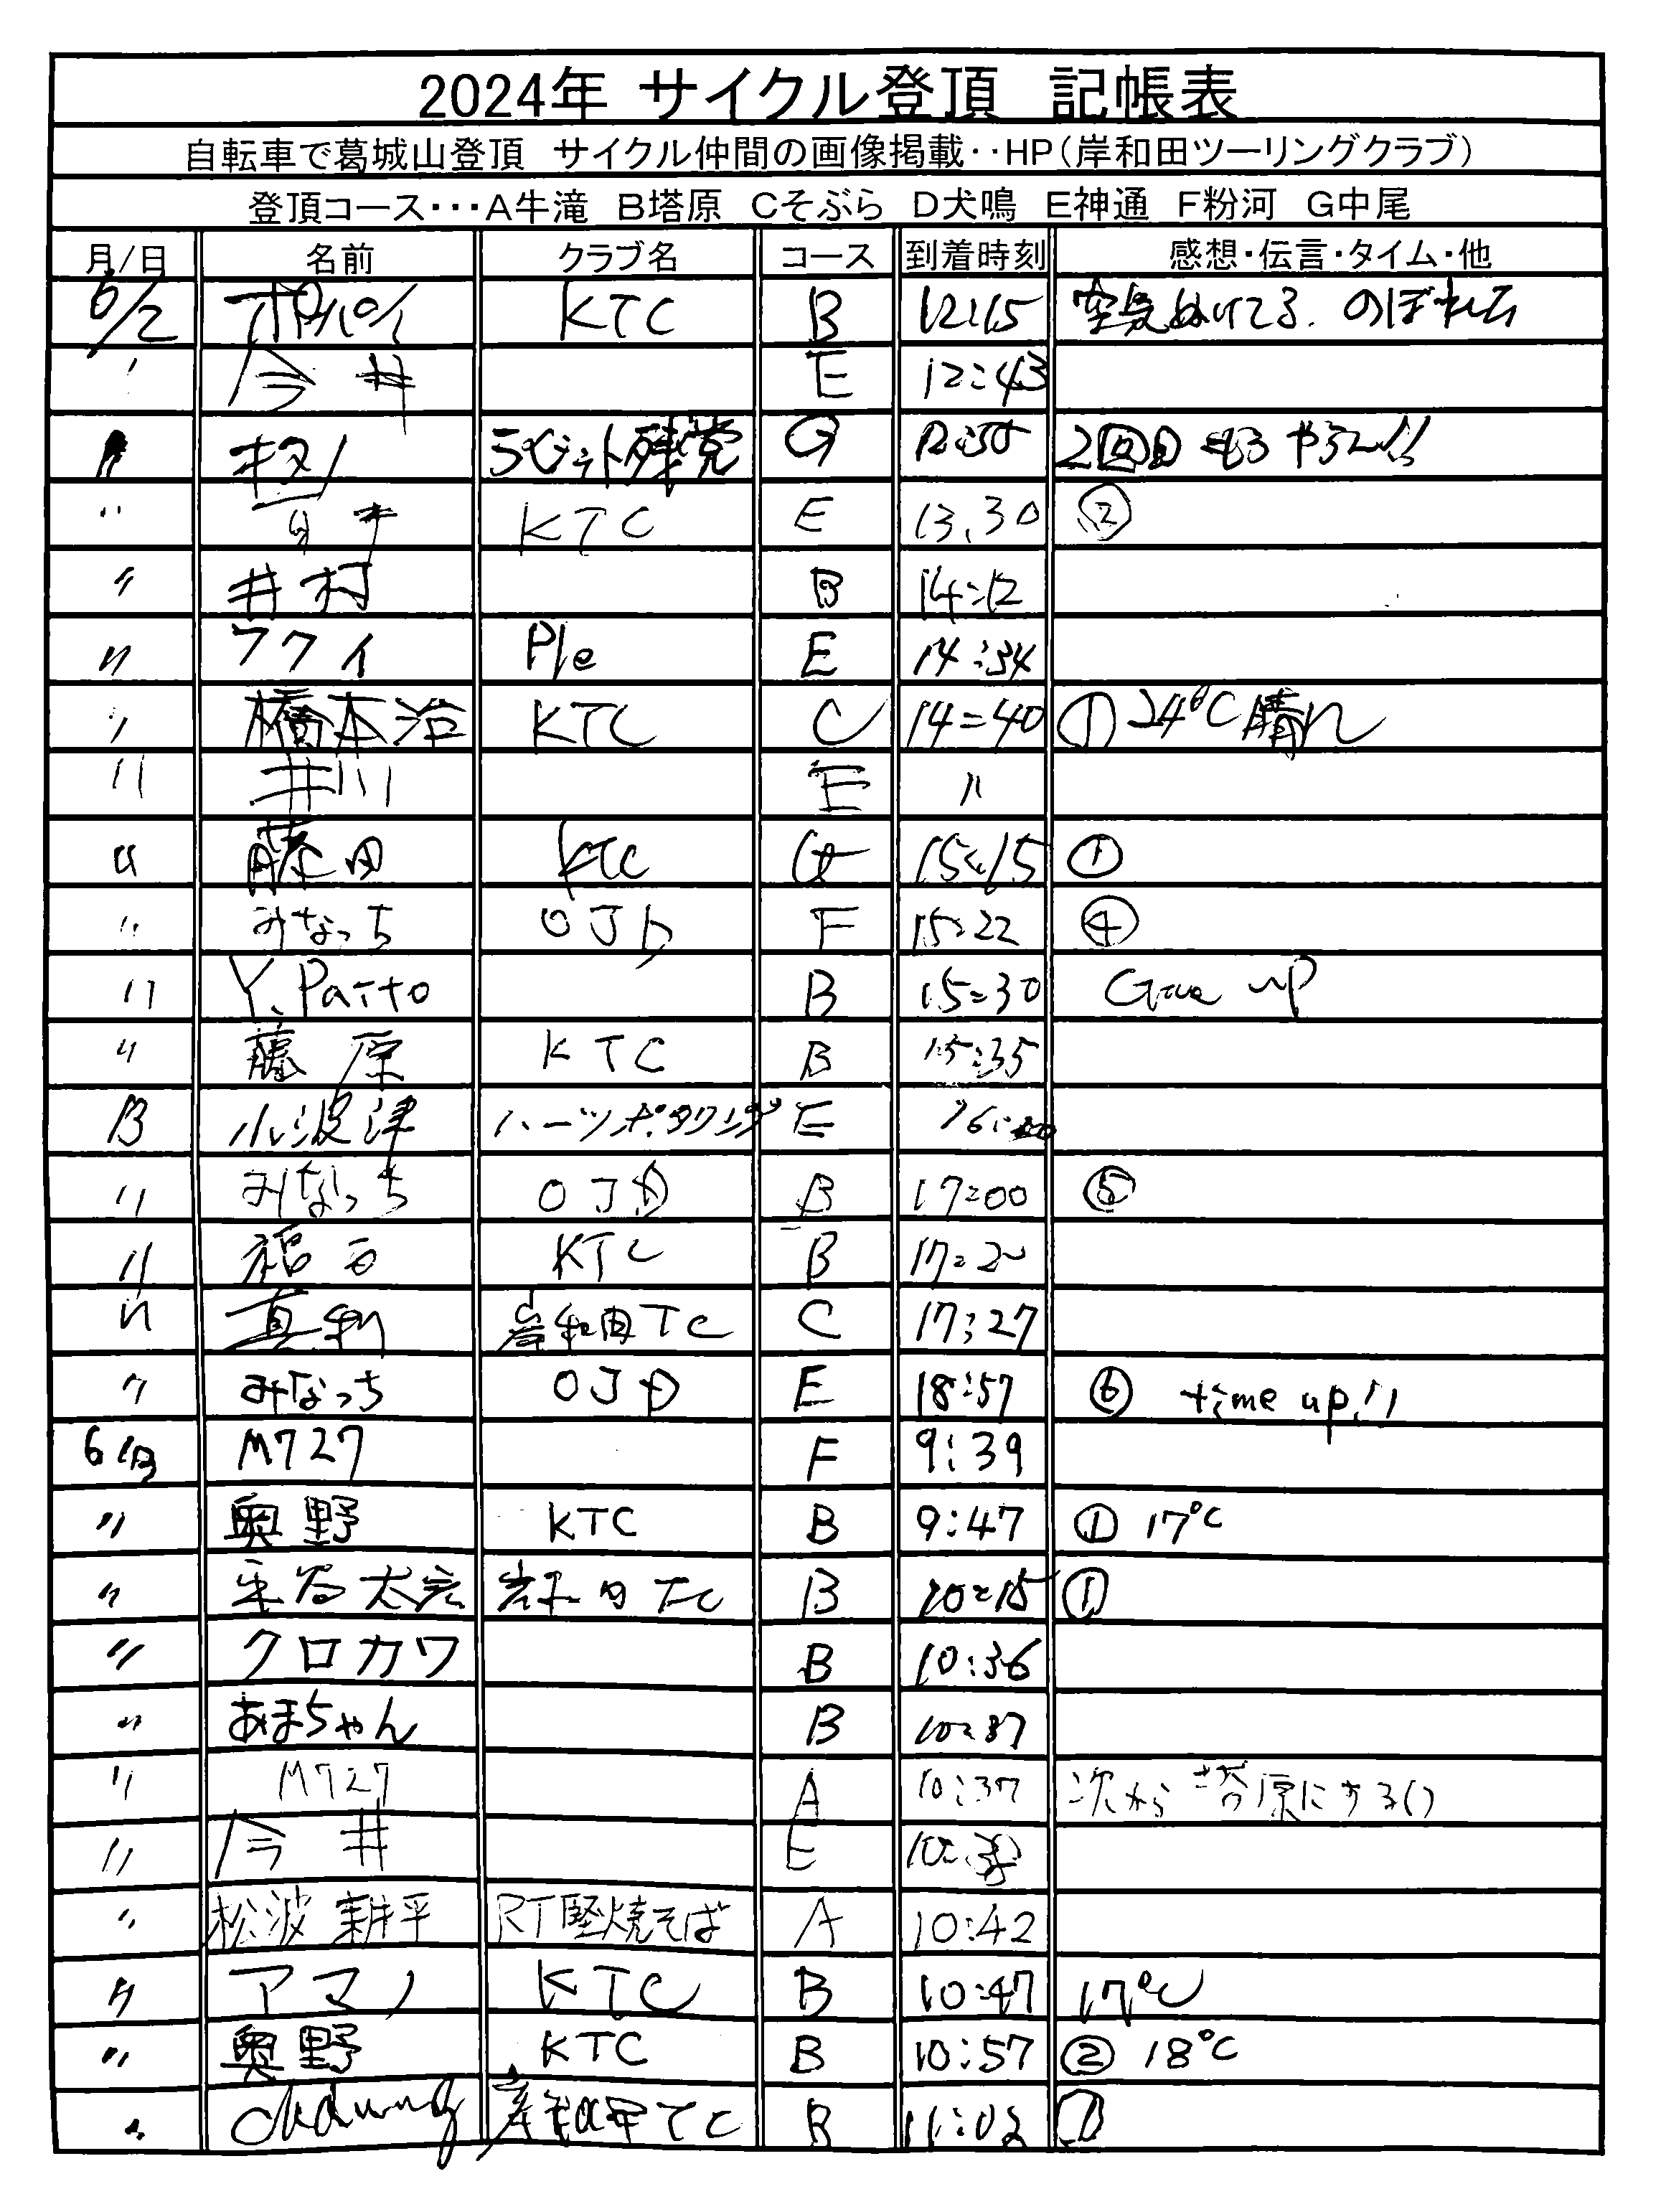 2024年 サイクル登頂 記帳表
自転車で葛城山登頂 サイクル仲間の画像掲載‥HP(岸和田ツーリングクラブ)
登頂コース・・・A牛滝 B塔原 Cそぶら D犬鳴 E神通 F粉河 G中尾
月/日 名前 クラブ名 コース 到着時刻 感想・伝言・タイム・他
6/2 KTC B 12:15 空気ぬけてる。のぼれん
今井 E 12:43
〃 キタノ ラビット残党 G 12:50 2回目
〃 KTC E 13.30 ②
〃 井村 B 14:12
〃 フクイ Ple E 14:34
〃 橋本治 KTC C 14=40 ① 24℃晴れ
〃 井川 E 〃
〃 藤田 KTC G 15:15 ①
〃 みなっち OJD F 15:22 ④
〃 Y.Patto B 15=30 Give up
〃 藤原 KTC B 15:35
小波津 ハーツポタリング E
〃 みなっち OJD B 17=00 ⑤
〃 福田 KTC B 17=20
〃 真利 岸和田TC C 17:27
〃 みなっち OJD E 18:57 ⑥ time up!!
M727 F 9:39
〃 奥野 KTC B 9:47 ① 17℃
〃 岸和田TC B 10=15 ①
〃 クロカワ B 10:36
〃 あまちゃん B 10:37
〃 M727 A 10:37 次から塔原にする!!
〃 今井 E
〃 松波耕平 RT堅焼そば A 10:42
〃 アマノ KTC B 10:47 17℃
〃 奥野 KTC B 10:57 ② 18℃
〃 岸和田TC B 11:02 ①